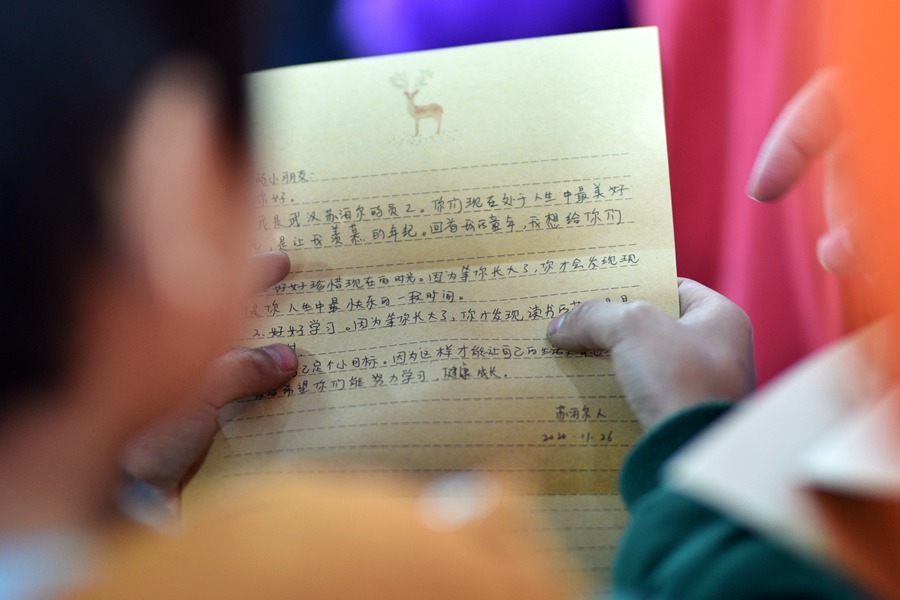 的小朋友:
你好。
我是武汉苏泊尔的员工。你们现在处于人生中最美好
,是让我羡慕的年纪。回首我的童年,我想给你们
好好珍惜现在的时光。因为等你长大了,你才会发现现
你人生中最快乐的一段时间。
2.好好学习。因为等你长大了,你才发现读书
定个小目标。因为这样才能让自己的生活
希望你们能努力学习,健康成长。
苏泊尔人
2020.11.26